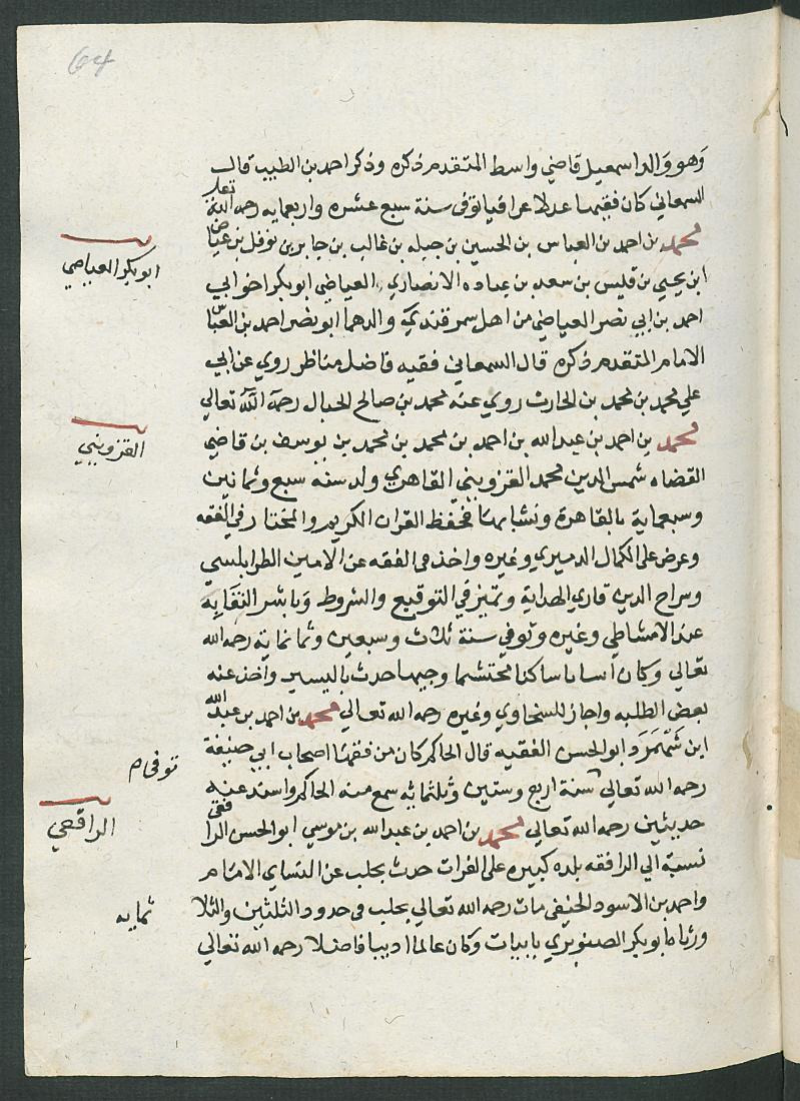 64
وهو والد اسمعيل قاضي واسط المتقدم ذكره وذكر احمد بن الطيب قال
السمعاني كان فقيها عدلا عراقيا توفي سنة سبع عشره واربعمايه رحمه الله تعالى
محمد بن احمد بن العباس بن الحسين بن جبله بن غالب بن جابر بن نوفل بن عياض
ابو بكر العياضي
ابن يحيي بن قليس بن سعد بن عباده الانصاري العياضي ابو بكر اخو ابي
احمد بن ابي نصر العياضي من اهل سمرقندي والدهما ابو نصر احمد بن العباس
الامام المتقدم ذكره قال السمعاني فقيه فاضل مناظر روي عن ابي
علي محمد بن محمد بن الحارث روي عنه محمد بن صالح الحبال رحمه الله تعالي
محمد بن احمد بن عبد الله بن احمد بن محمد بن محمد بن يوسف بن قاضي
القزويني
القضاه شمس الدين محمد القزويني القاهري ولد سنه سبع وثمانين
وسبعماية بالقاهرة ونشا بها فحفظ القران الكريم والمختار في الفقه
وعرض على الكمال الدميري وغيره واخذ في الفقه عن الامين الطرابلسي
وسراج الدين قاري الهداية وتميز في التوقيع والشروط وباشر النقابه
عند الامشاطي وغيره وتوفي سنة ثلاث وسبعين وثمانماية رحمه الله
تعالي وكان انسانا ساكنا محتشما وجيها حدث باليسير واخذ عنه
بعض الطلبه واجاز للسخاوي وغيره رحمه الله تعالي محمد بن احمد بن عبد الله
ابن شمرد ابو الحسن الفقيه قال الحاكم كان من فقهاء اصحاب ابي حنيفة
توفي م
رحمه الله تعالي سنة اربع وستين وثلثمائه سمع منه الحاكم واسند عنه
حديثين رحمه الله تعالي محمد بن احمد بن عبد الله بن موسي ابو الحسن الرافقي
الرافقي
نسبة الي الرافقه بلده كبيره على الفرات حدث بحلب عن النساي الامام
واحمد بن الاسود الحنفي مات رحمه الله تعالي بحلب في حدود الثلثين والثلا
ثمايه
ورثاه ابو بكر الصنوبري بابيات وكان عالما اديبا فاضلا رحمه الله تعالي